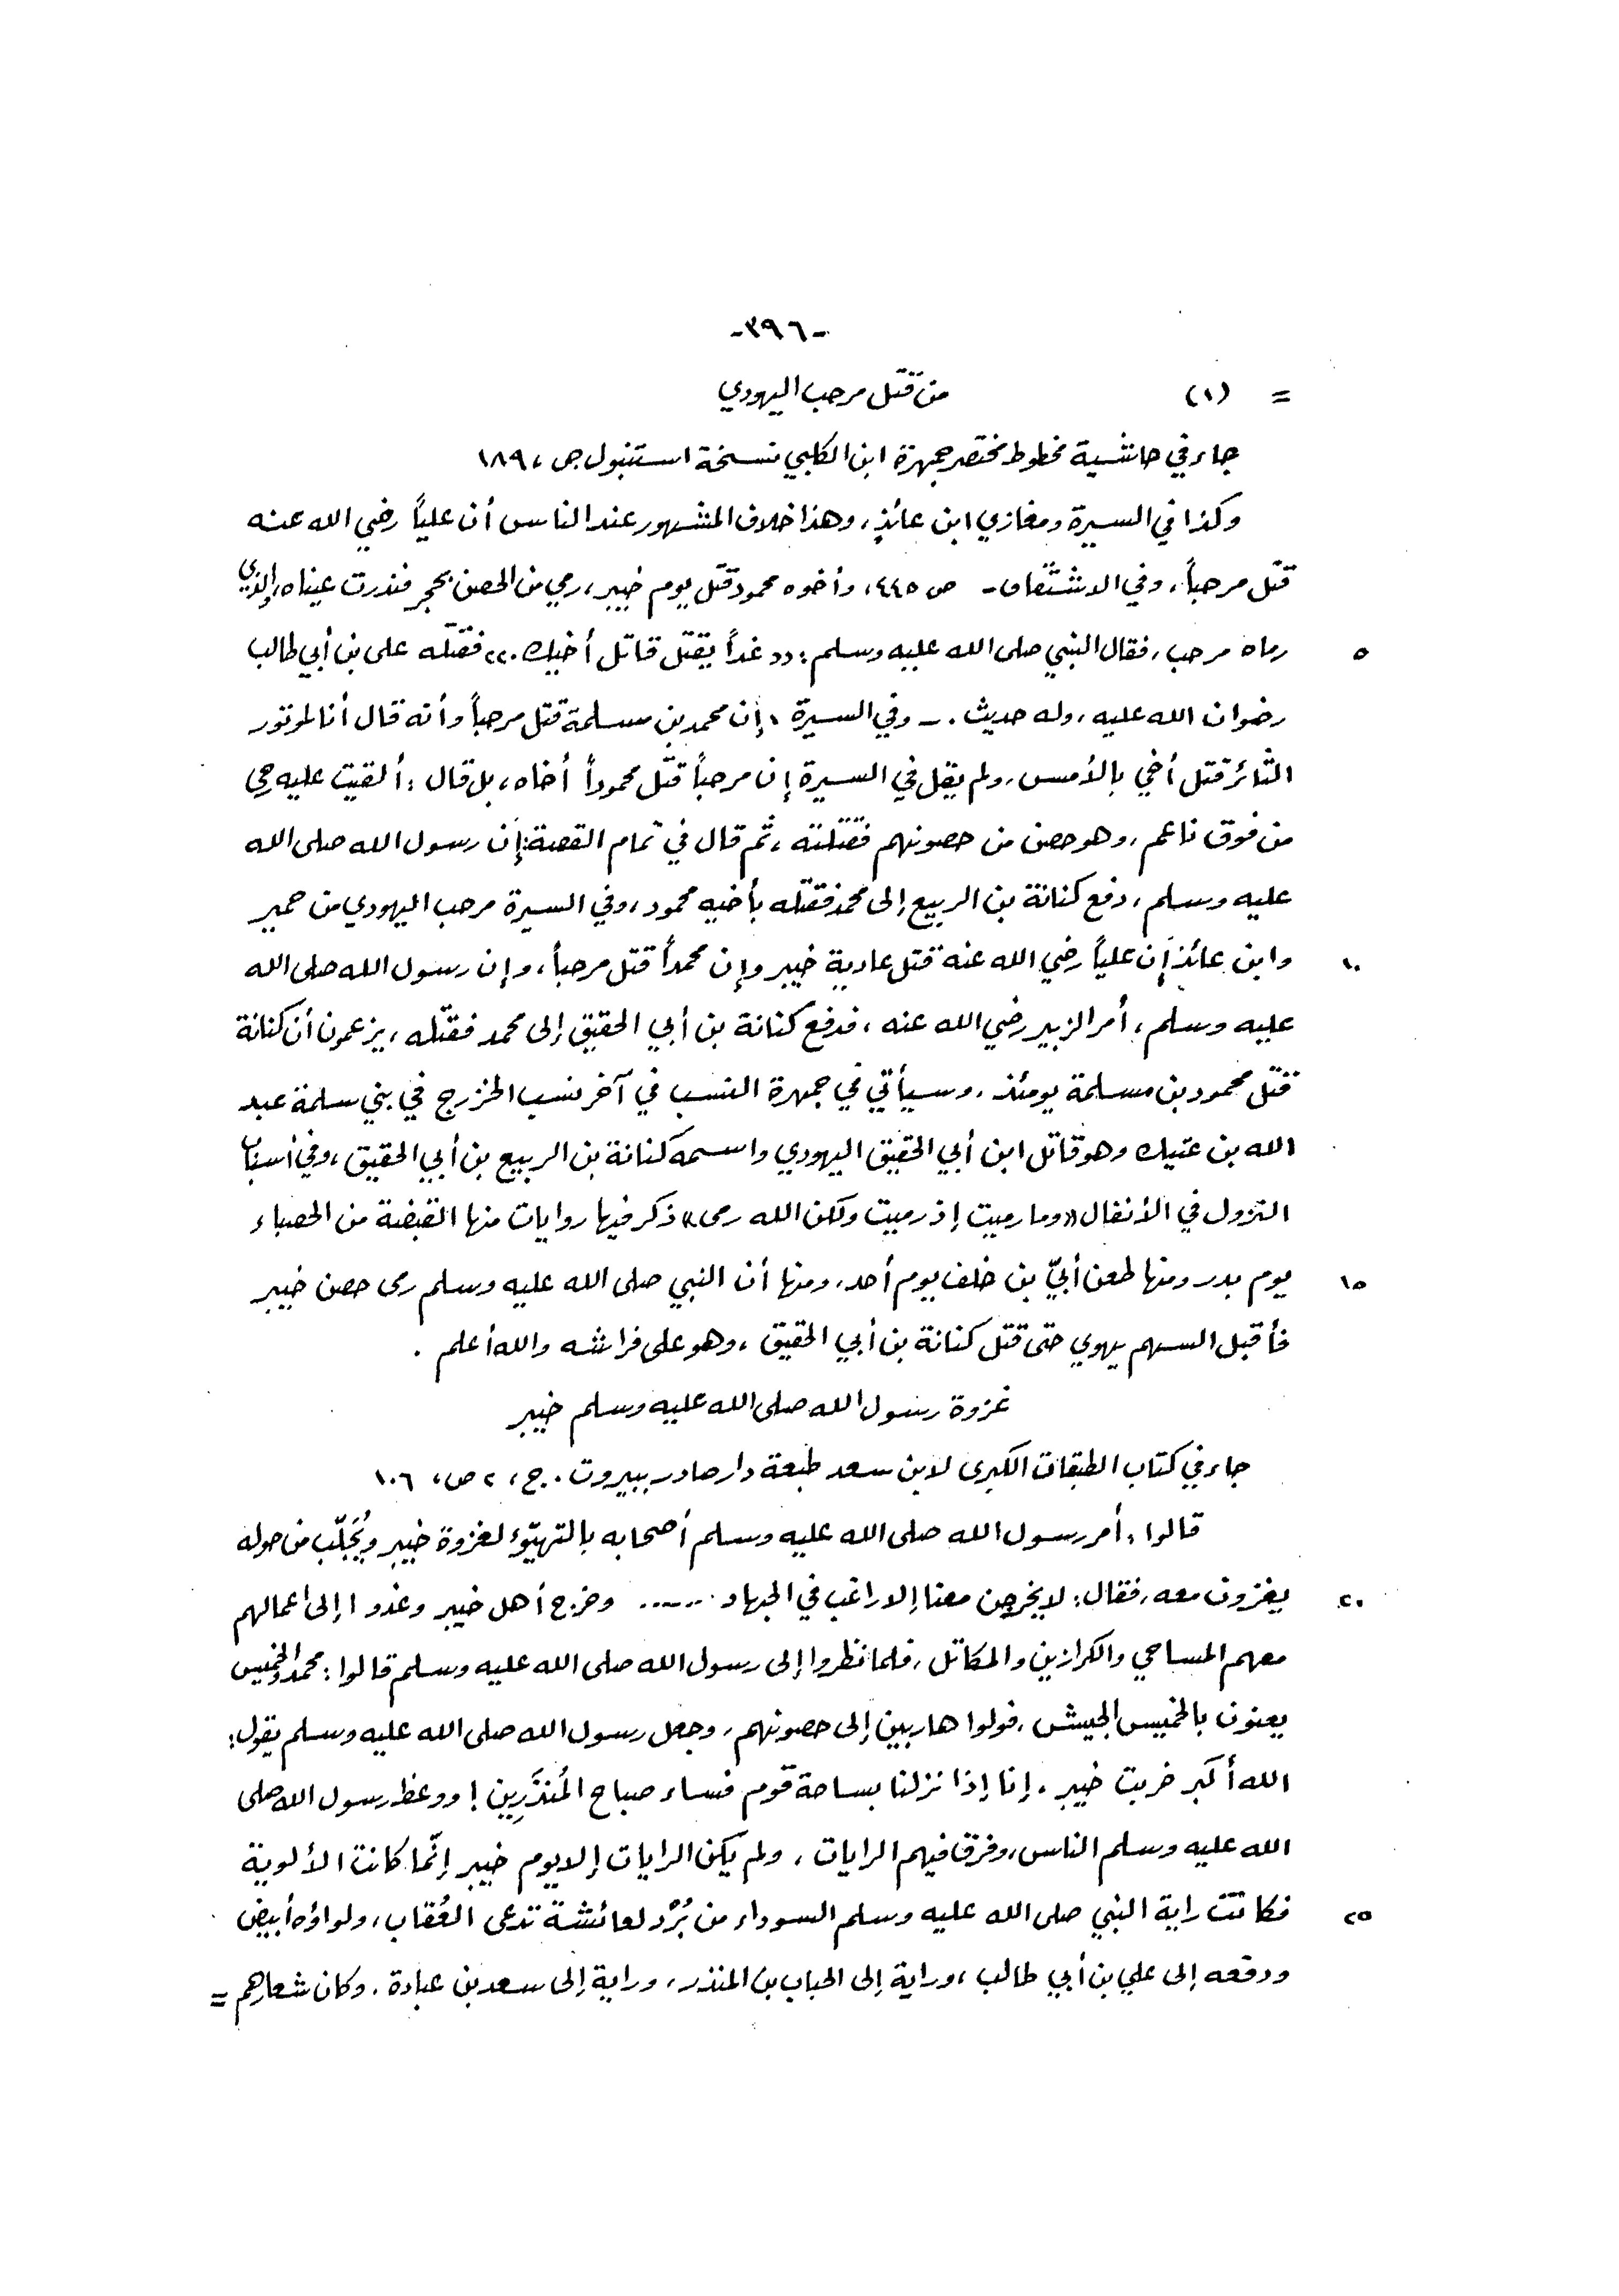 -٣٩٦-
= (١) من قتل مرحب اليهودي
جاء في حاشية مخطوط مختصر جمهرة ابن الكلبي نسخة استنبول ص، ١٨٩
وكذا في السيرة ومغازي ابن عائذٍ، وهذا خلاف المشهور عند الناس أن علياً رضي الله عنه
قتل مرحباً، وفي الاشتقاق - ص ٤٤٥، وأخوه محمود قتل يوم خيبر، رمي من الحصن بحجر فندرت عيناه، والذي
٥ رماه مرحب، فقال النبي صلى الله عليه وسلم: «غداً يقتل قاتل أخيك.» فقتله علي بن أبي طالب
رضوان الله عليه، وله حديث. - وفي السيرة، إن محمد بن مسلمة قتل مرحباً وأنه قال أنا الموتور
الثائر قتل أخي بالأمس، ولم يقل في السيرة إن مرحباً قتل محموداً أخاه، بل قال: ألقيت عليه رحى
من فوق ناعم، وهو حصن من حصونهم فقتلته، ثم قال في تمام القصة: إن رسول الله صلى الله
عليه وسلم، دفع كنانة بن الربيع إلى محمد فقتله بأخيه محمود، وفي السيرة مرحب اليهودي من حمير
١٠ وابن عائذ إن علياً رضي الله عنه قتل عادية خيبر وإن محمداً قتل مرحباً، وإن رسول الله صلى الله
عليه وسلم، أمر الزبير رضي الله عنه، فدفع كنانة بن أبي الحقيق إلى محمد فقتله، يزعمون أن كنانة
قتل محمود بن مسلمة يومئذ. وسيأتي في جمهرة النسب في آخر نسب الخزرج في بني سلمة عبد
الله بن عتيك وهو قاتل ابن أبي الحقيق اليهودي واسمه كنانة بن الربيع بن أبي الحقيق، وفي أسباب
النزول في الأنفال «وما رميت إذ رميت ولكن الله رمى» ذكر فيها روايات منها القبضة من الحصباء
١٥ يوم بدر ومنها طعن أبيّ بن خلف يوم أحد، ومنها أن النبي صلى الله عليه وسلم رمى حصن خيبر
فأقبل السهم يهوي حتى قتل كنانة بن أبي الحقيق، وهو على فراشه والله أعلم.
غزوة رسول الله صلى الله عليه وسلم خيبر
جاء في كتاب الطبقات الكبرى لابن سعد طبعة دار صادر ببيروت. ج، ٢ ص، ١٠٦
قالوا: أمر رسول الله صلى الله عليه وسلم أصحابه بالتهيّؤ لغزوة خيبر ويُجَلّب من حوله
٢٠ يغزون معه، فقال: لا يخرجن معنا إلا راغب في الجهاد ...... وخرج أهل خيبر وغدوا إلى أعمالهم
معهم المساحي والكرازين والمكاتل، فلما نظروا إلى رسول الله صلى الله عليه وسلم قالوا: محمد والخميس
يعنون بالخميس الجيش، فولوا هاربين إلى حصونهم، وجعل رسول الله صلى الله عليه وسلم يقول:
الله أكبر خربت خيبر، إنا إذا نزلنا بساحة قوم فساء صباح المُنذَرِين! ووعظ رسول الله صلى
الله عليه وسلم الناس، وفرق فيهم الرايات، ولم يكن الرايات إلا يوم خيبر إنّما كانت الألوية
٢٥ فكانت راية النبي صلى الله عليه وسلم السوداء من بُرْد لعائشة تدعى العُقاب، ولواؤه أبيض
ودفعه إلى علي بن أبي طالب، وراية إلى الحباب بن المنذر، وراية إلى سعد بن عبادة. وكان شعارهم =